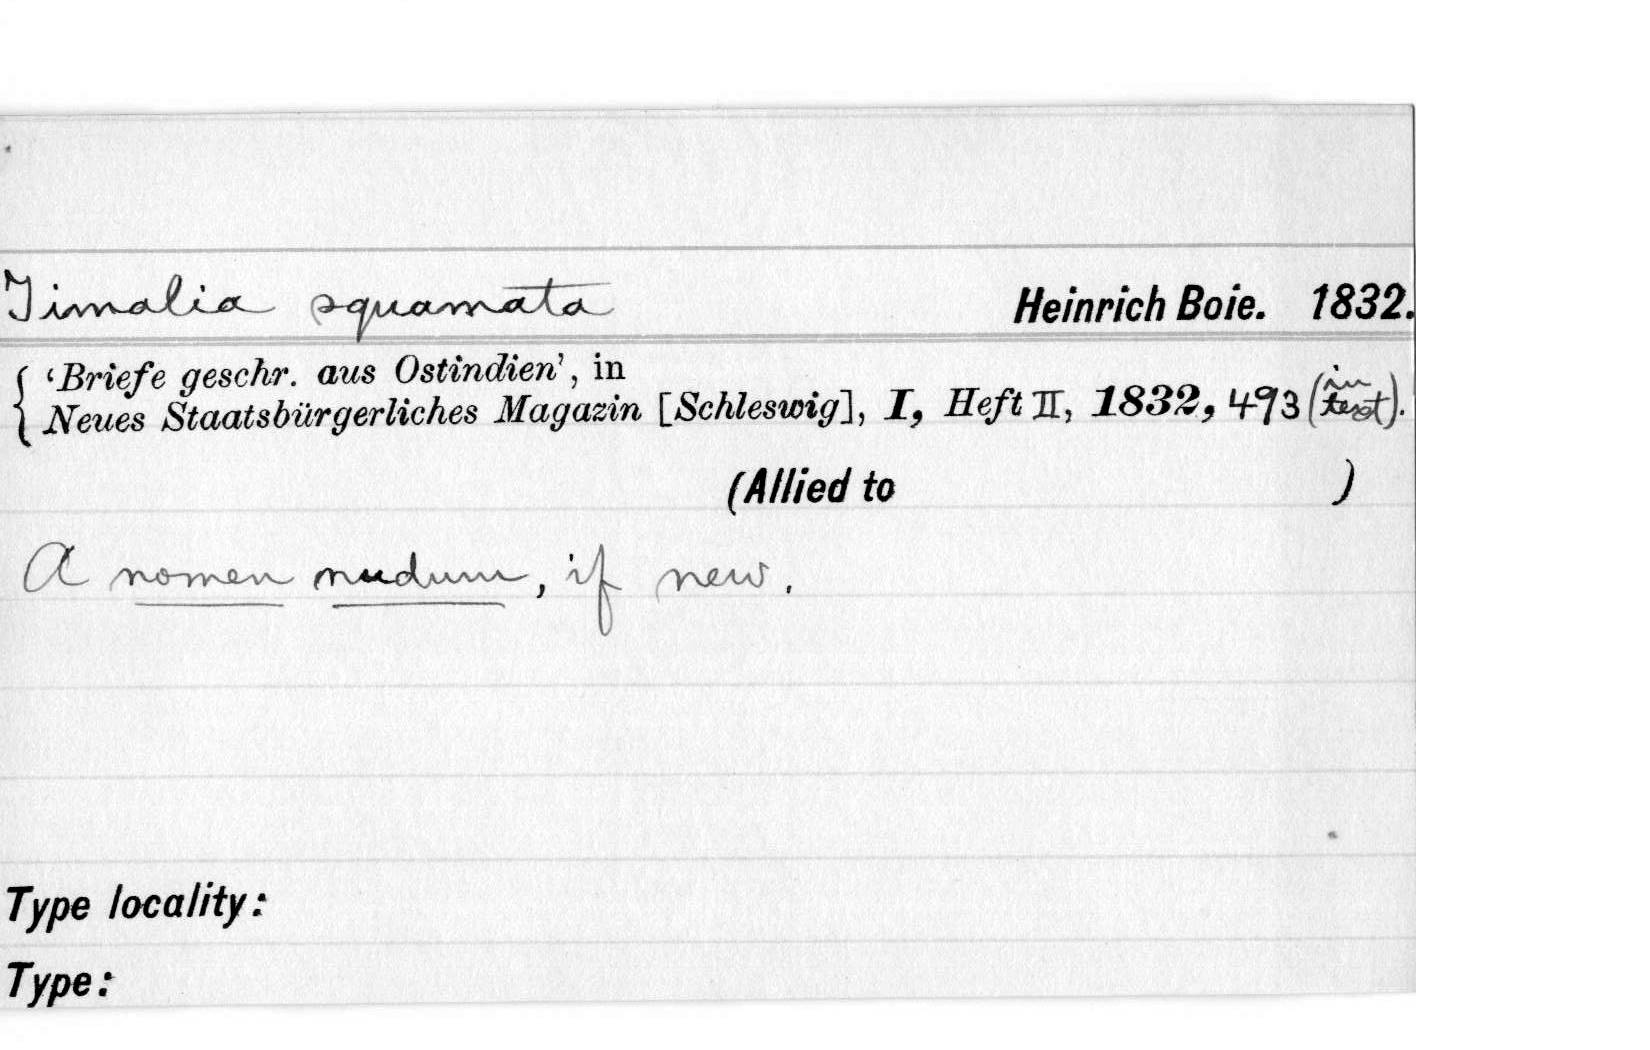 Timalia squamata Heinrich Boie. 1832.
‘Briefe geschr. aus Ostindien’, in
Neues Staatsbürgerliches Magazin [Schleswig], I, Heft II, 1832, 493 (in text).
(Allied to )
A nomen nudum, if new.
Type locality:
Type: